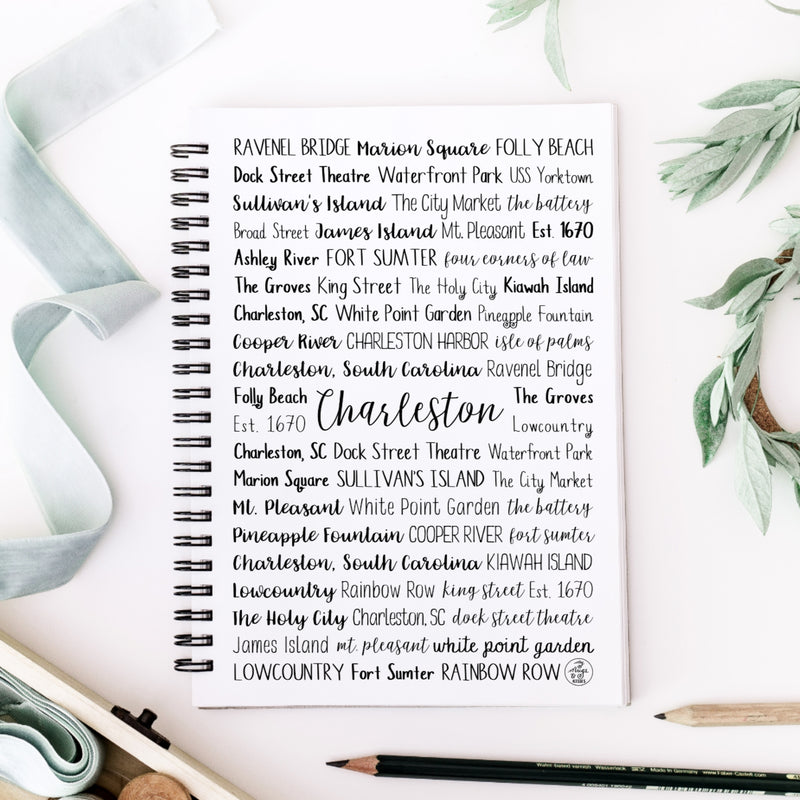 RAVENEL BRIDGE Marion Square FOLLY BEACH
Dock Street Theatre Waterfront Park USS Yorktown
Sullivan's Island The City Market the battery
Broad Street James Island Mt. Pleasant Est. 1670
Ashley River FORT SUMTER four corners of law
The Groves King Street The Holy City Kiawah Island
Charleston, SC White Point Garden Pineapple Fountain
Cooper River CHARLESTON HARBOR isle of palms
Charleston, South Carolina Ravenel Bridge
Folly Beach
Est. 1670
Charleston
The Groves
Lowcountry
Charleston, SC Dock Street Theatre Waterfront Park
Marion Square SULLIVAN'S ISLAND The City Market
Mt. Pleasant White Point Garden the battery
Pineapple Fountain COOPER RIVER fort sumter
Charleston, South Carolina KIAWAH ISLAND
Lowcountry Rainbow Row king street Est. 1670
The Holy City Charleston, SC dock street theatre
James Island mt. pleasant white point garden
LOWCOUNTRY Fort Sumter RAINBOW ROW
Made in Germany www.Faber-Castell.com